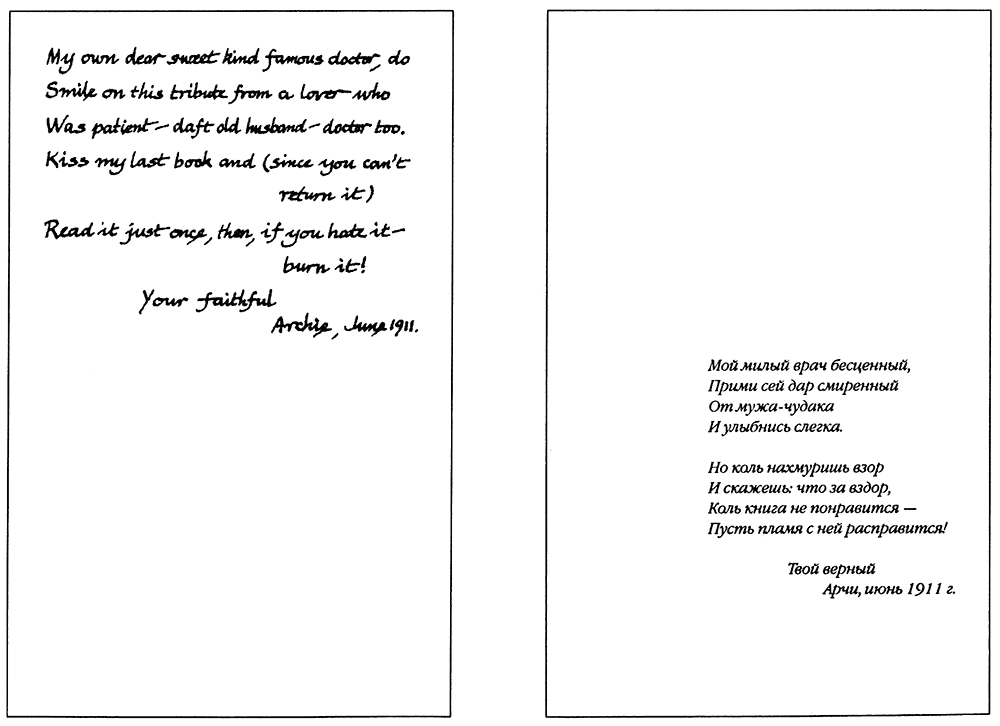 My own dear sweet kind famous doctor, do
Smile on this tribute from a lover who
Was patient – daft old husband – doctor too.
Kiss my last book and (since you can't
return it)
Read it just once, then, if you hate it –
burn it!
Your faithful
Archie, June 1911.
Мой милый врач бесценный,
Прими сей дар смиренный
От мужа-чудака
И улыбнись слегка.
Но коль нахмуришь взор
И скажешь: что за вздор,
Коль книга не понравится —
Пусть пламя с ней расправится!
Твой верный
Арчи, июнь 1911 г.